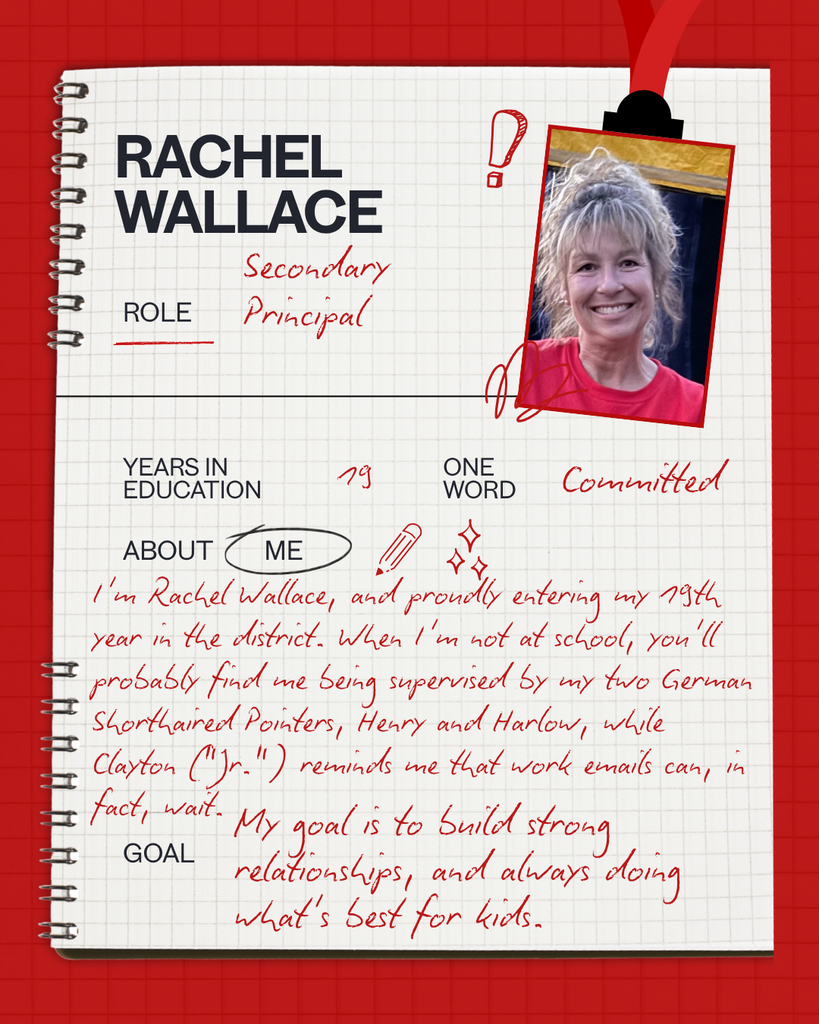 RACHEL
WALLACE
ROLE
Secondary
Principal
YEARS IN
EDUCATION
19
ONE
WORD
Committed
ABOUT ME
I'm Rachel Wallace, and proudly entering my 19th
year in the district. When I'm not at school, you'll
probably find me being supervised by my two German
Shorthaired Pointers, Henry and Harlow, while
Clayton ("Jr.") reminds me that work emails can, in
fact, wait.
GOAL
My goal is to build strong
relationships, and always doing
what's best for kids.